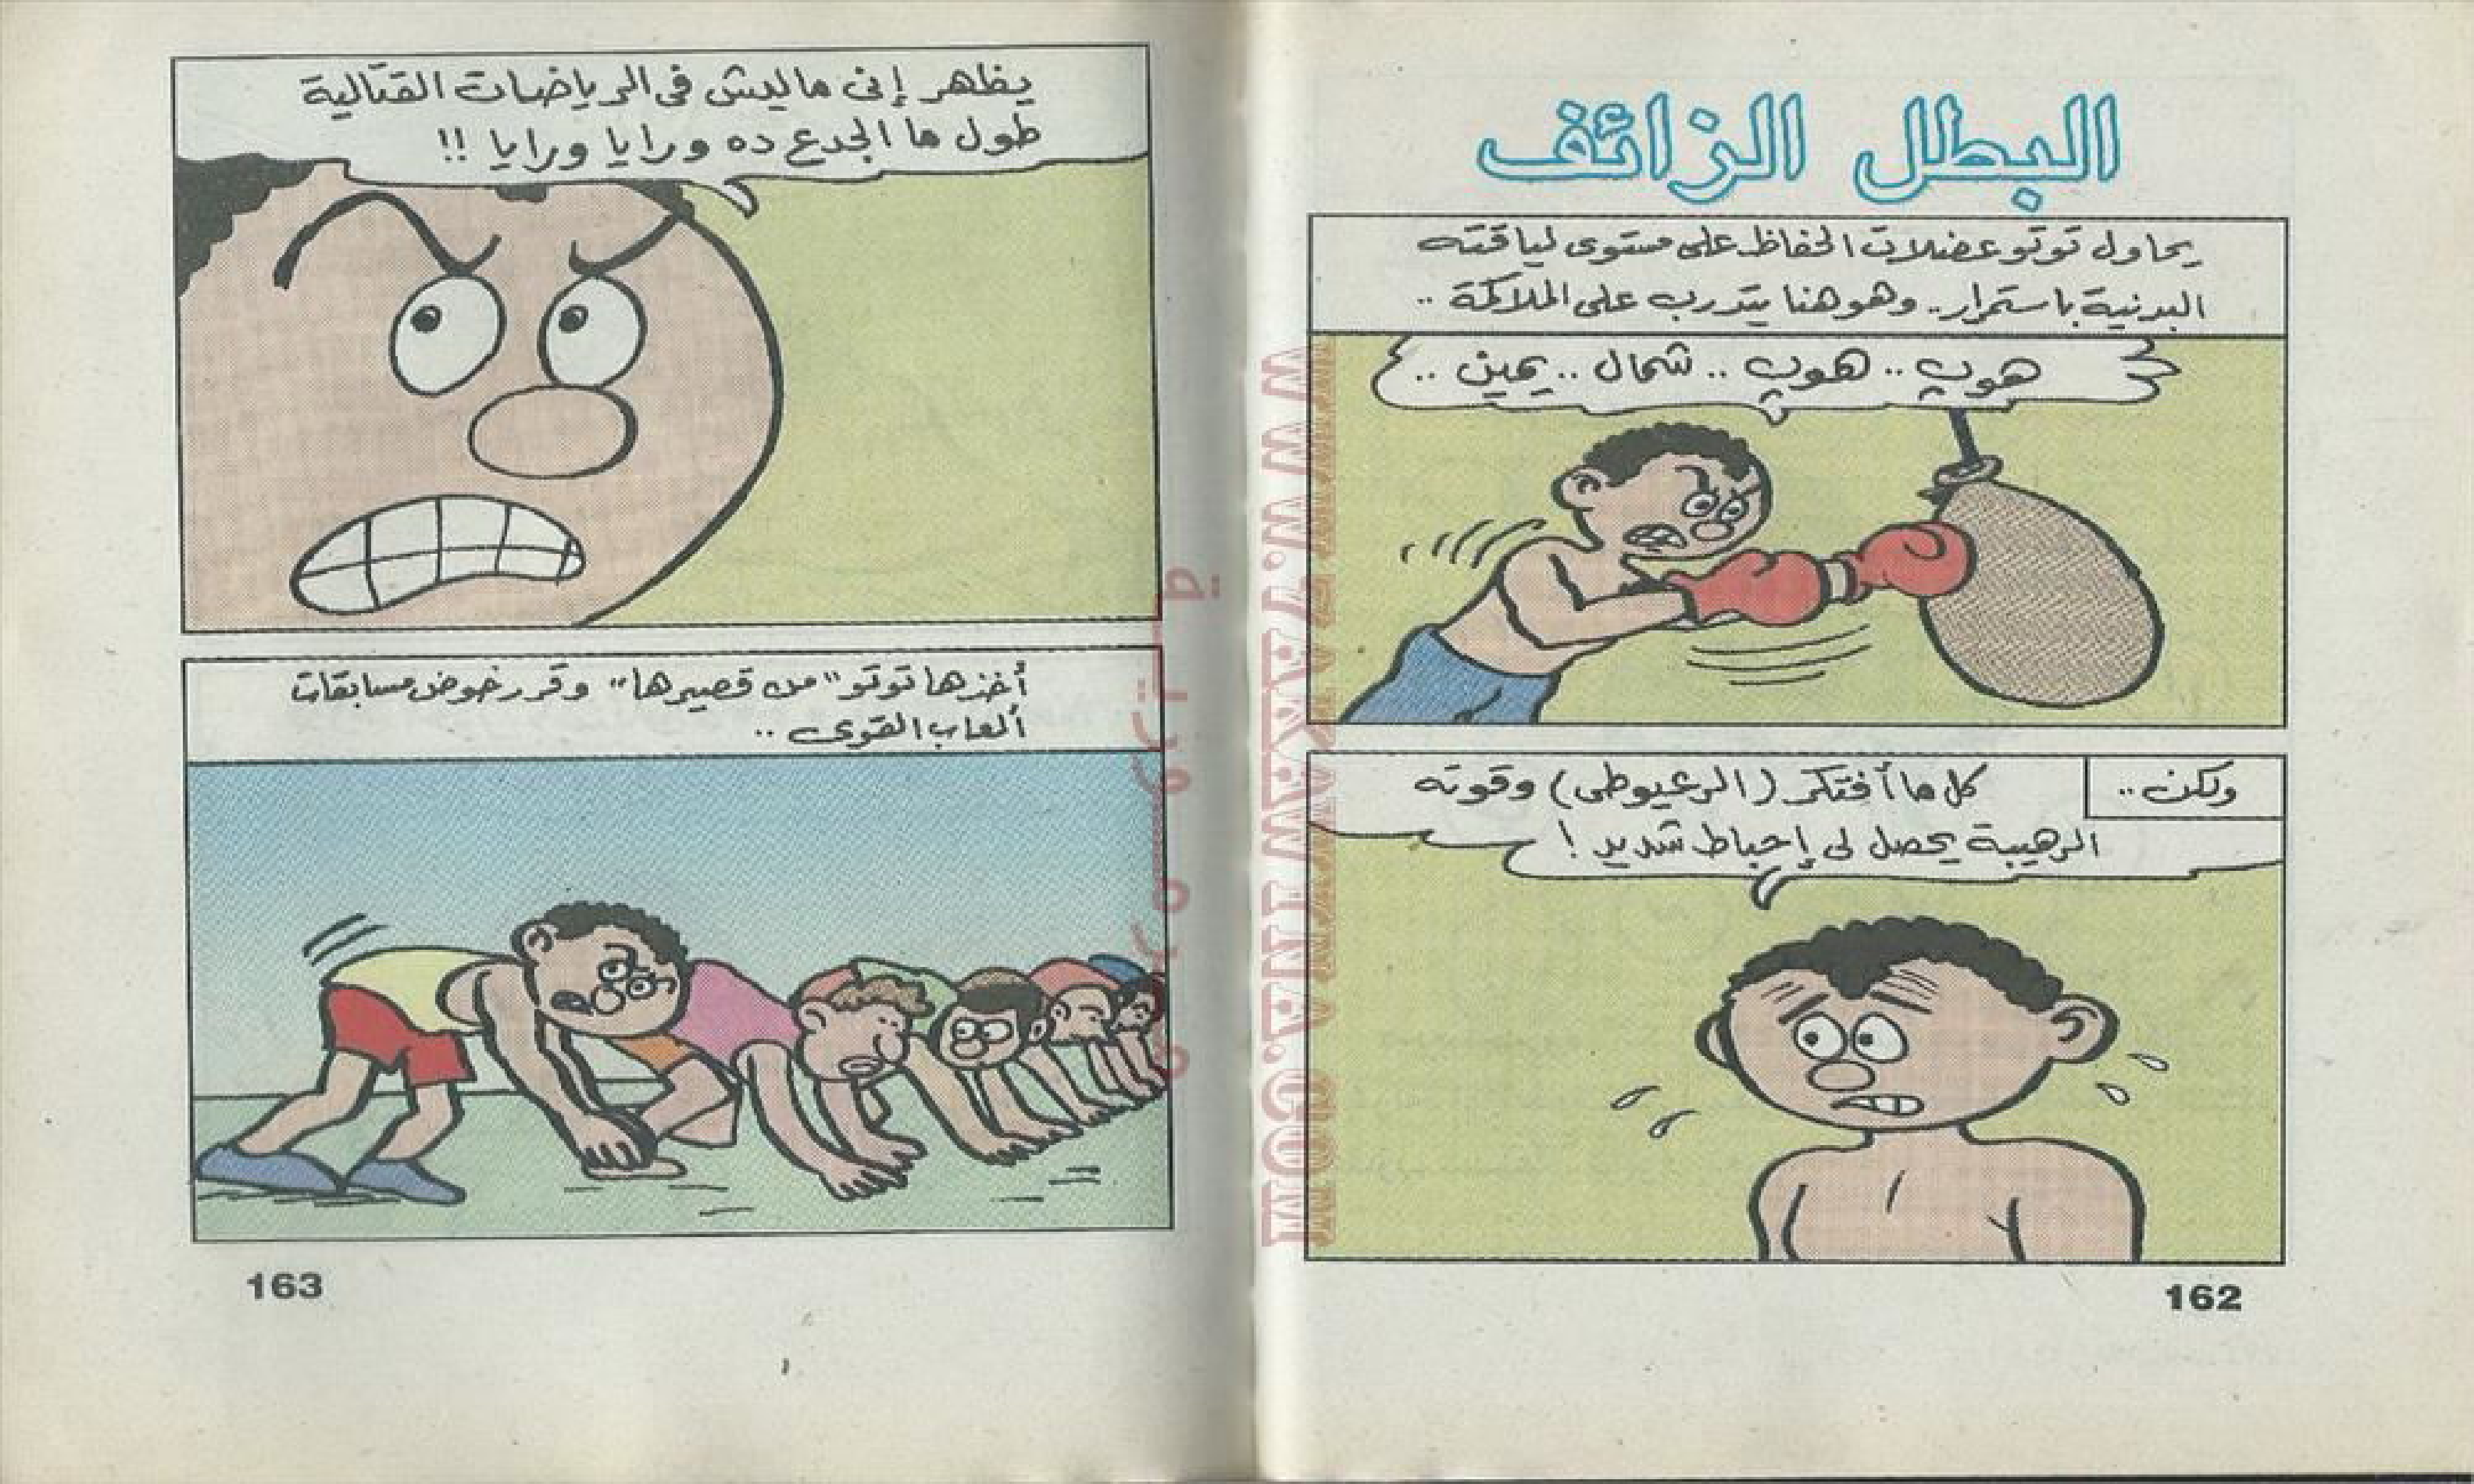 البطل الزائف
يحاول توتو عضلات الحفاظ على مستوى لياقته
البدنية باستمرار.. وهو هنا يتدرب على الملاكمة ..
هوب .. هوب .. شمال .. يمين ..
ولكن ..
كل ما أفتكر (الرعيوطى) وقوته
الرهيبة يحصل لى إحباط شديد !
162
يظهر إنى ماليش فى الرياضات القتالية
طول ما الجدع ده ورايا ورايا !!
أخذها توتو "من قصيرها" وقرر خوض مسابقات
ألعاب القوى ..
163
WWW.ARABCOMICS.NET